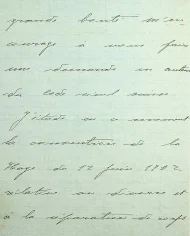 grande bonté m'en-
courage à vous faire
une demande en
du code civil suisse
J'étudie en ce moment
la convention de la
Haye du 12 juin 1902
relative au divorce et
à la séparation de corps